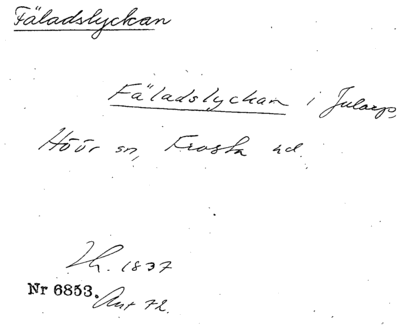 Fäladslyckan
Fäladslyckan i Jularp,
Höör sn, Frosta hd.
Lh. 1837
Nr 6853. Avs 72.